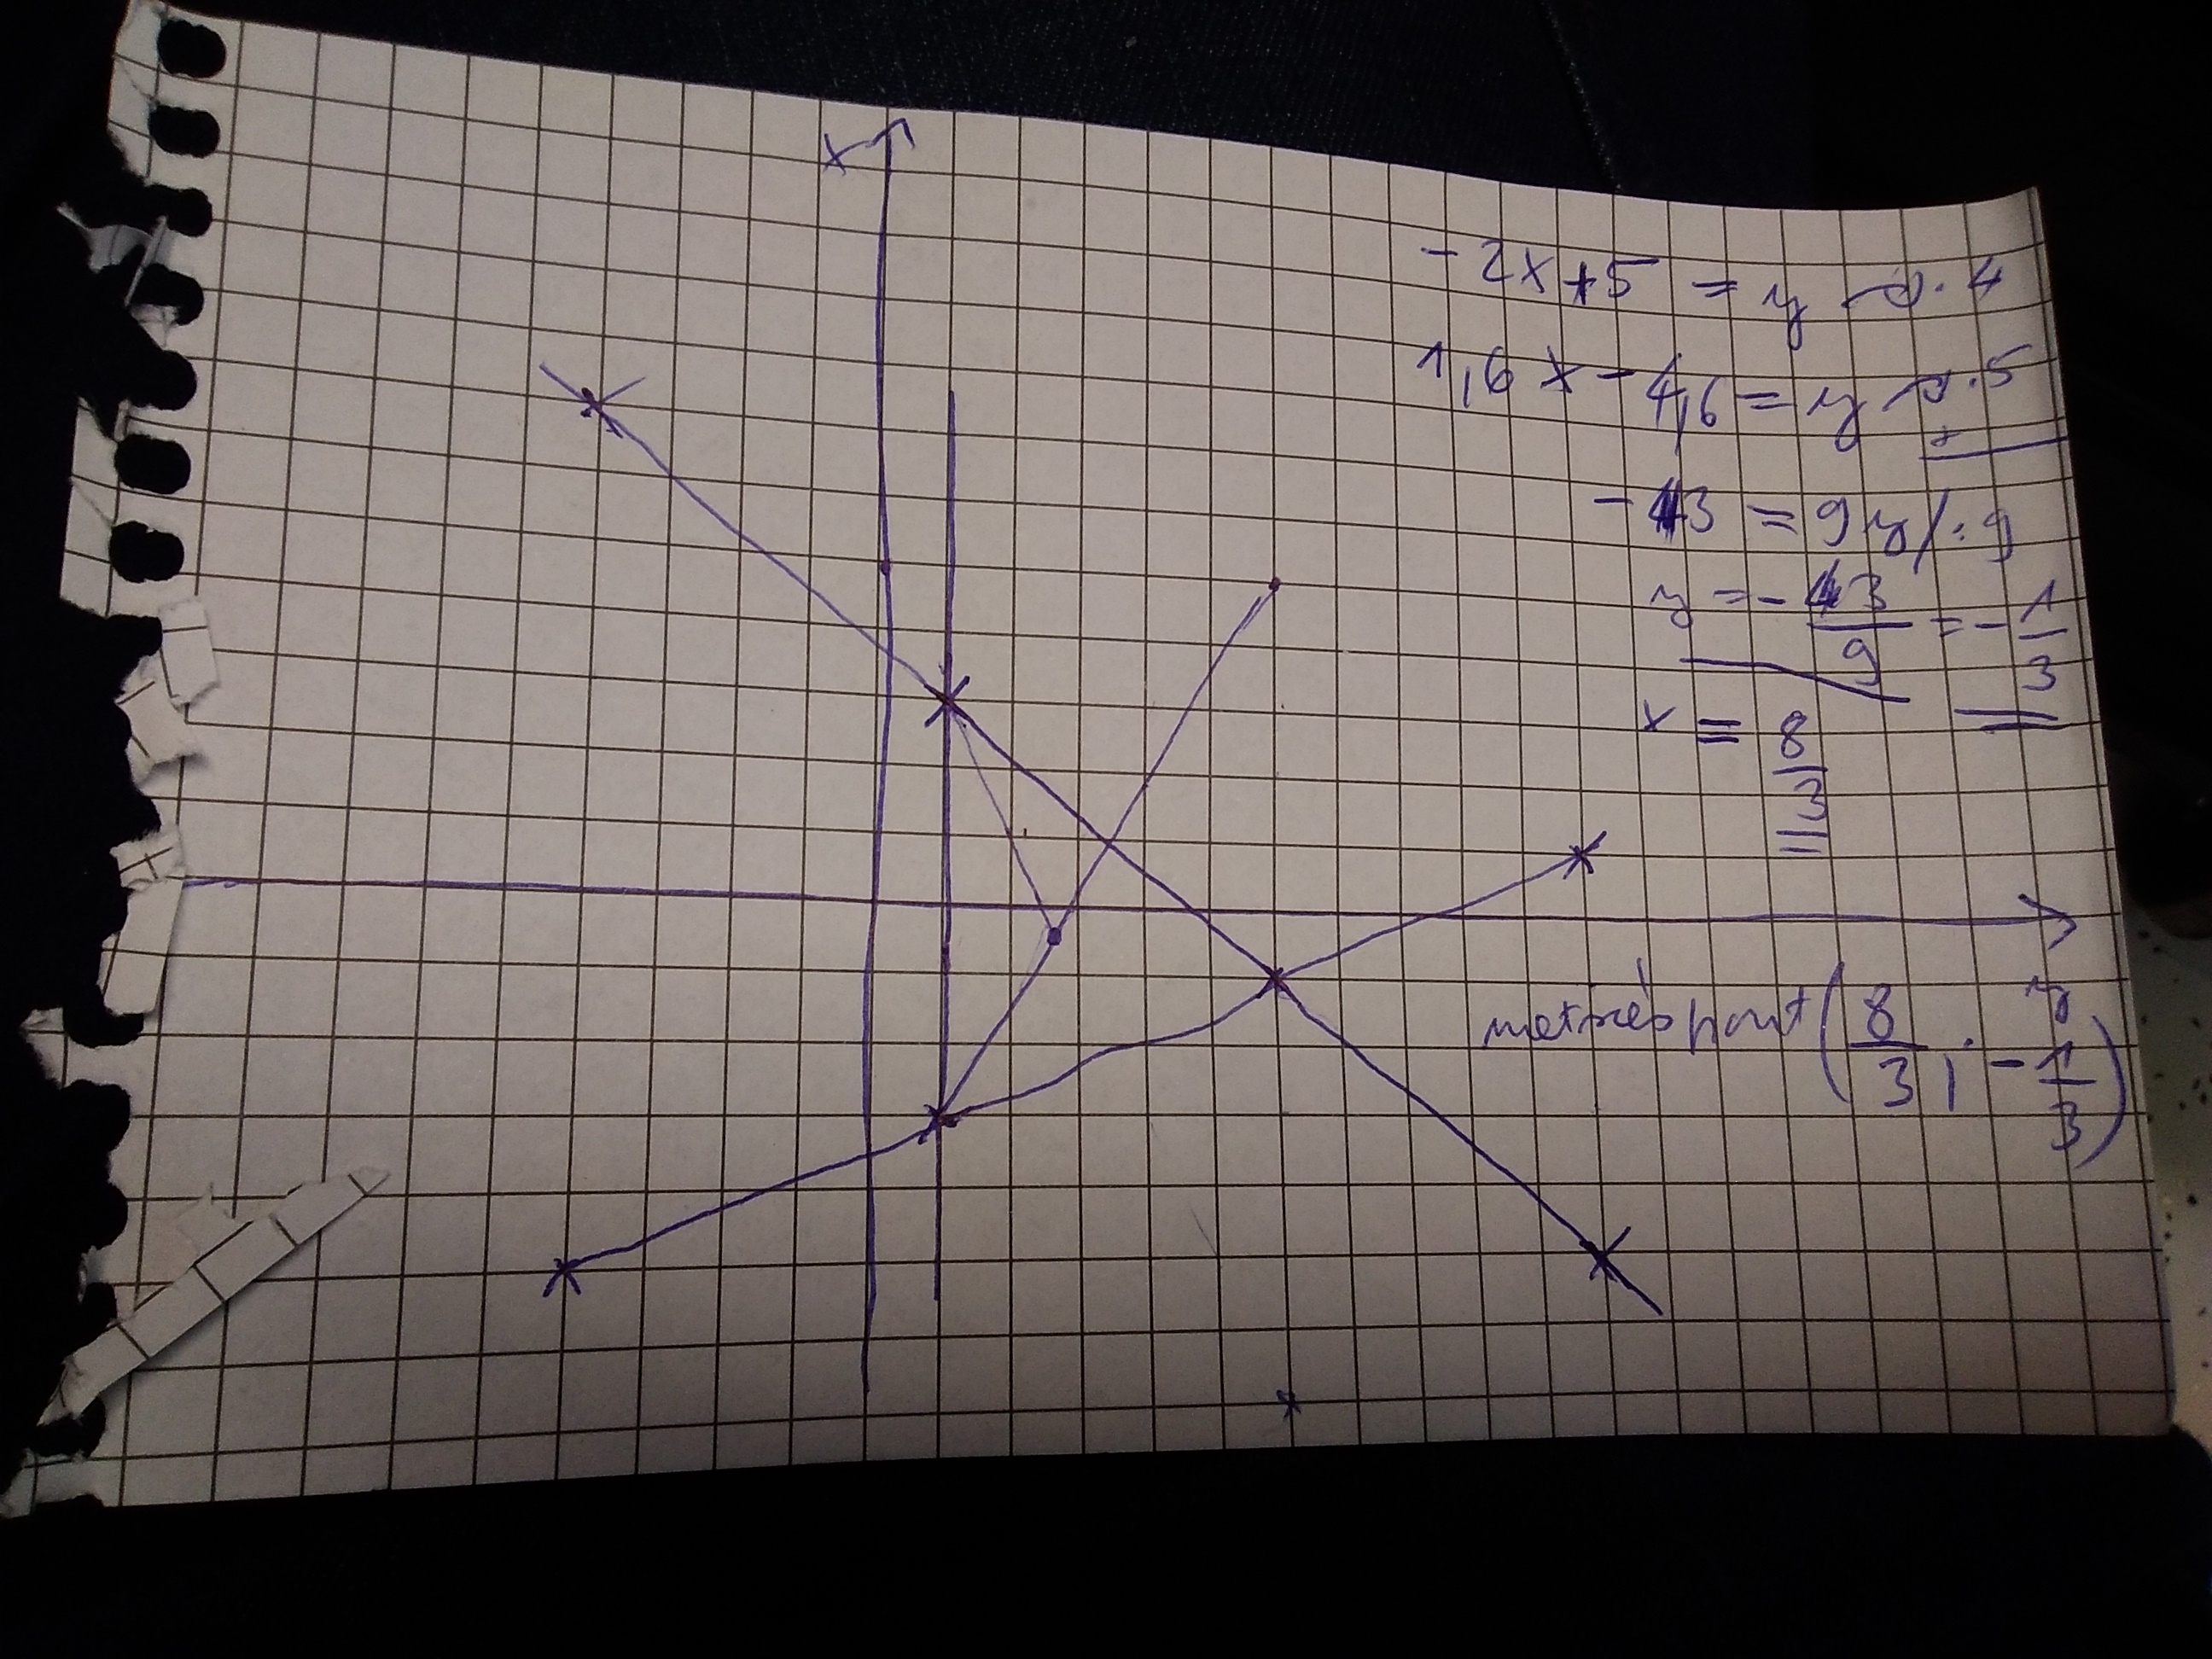 x
-2x+5 = y /·4
1,6x-4,6 = y /·5
+
-3 = 9y /:9
y = -3/9 = -1/3
x = 8/3
y
metszéspont (8/3; -1/3)